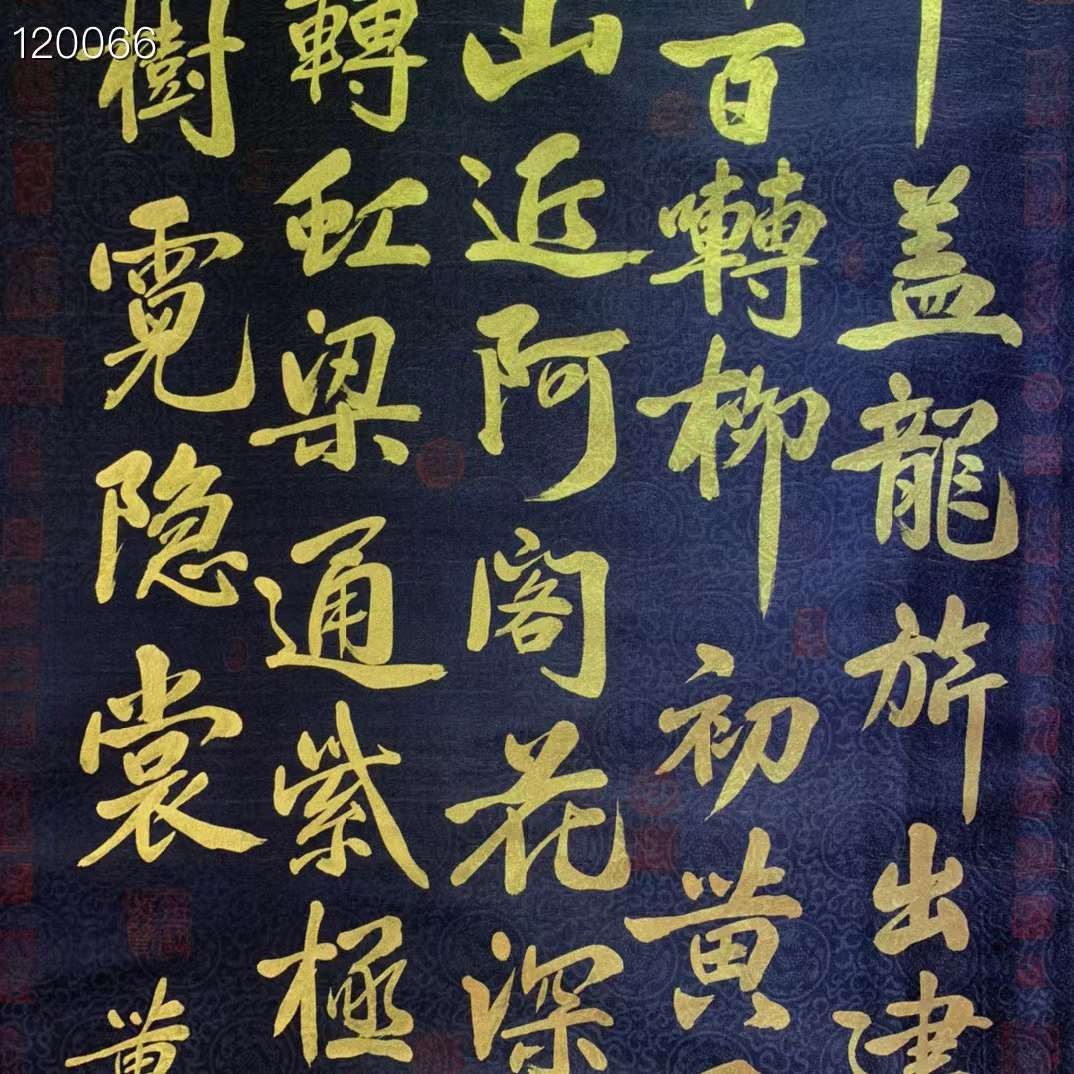 120066
盖龍旂出建
百囀柳初黄
山近阿閣花深
轉虹梁通紫極
樹霓隐裳
黄